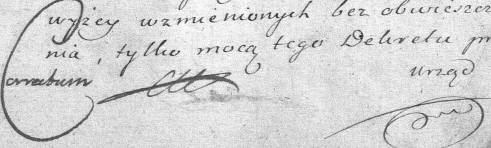 wyżey wzmienionych bez obwieszcze
nia, tylko mocą tego Dekretu pr
Urząd